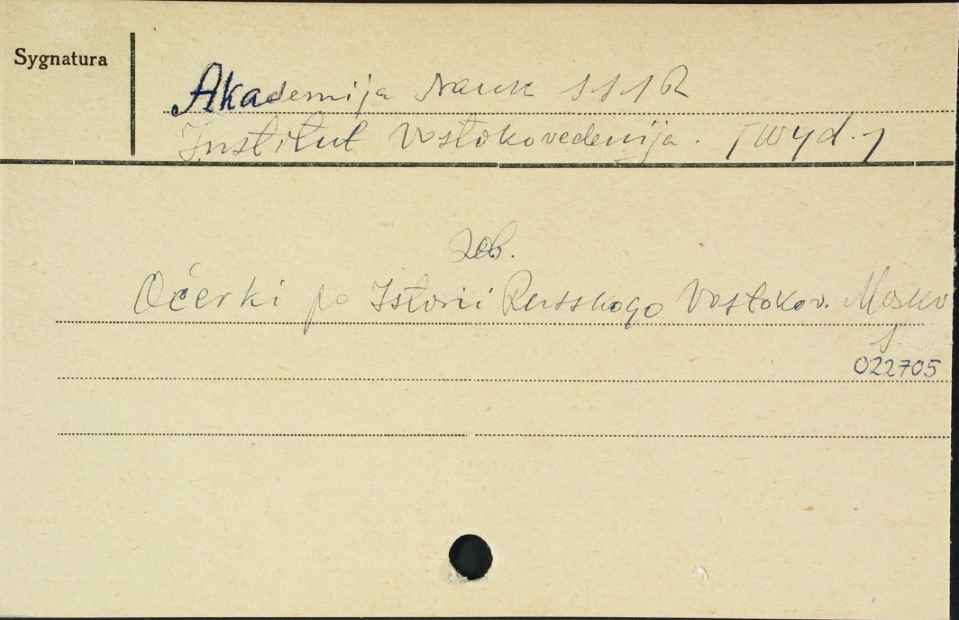 Sygnatura
Akademija Nauk SSSR
Institut Vostokovedenija. [Wyd.]
zob.
Očerki po Istorii Russkogo Vostokov. Moskv
022705